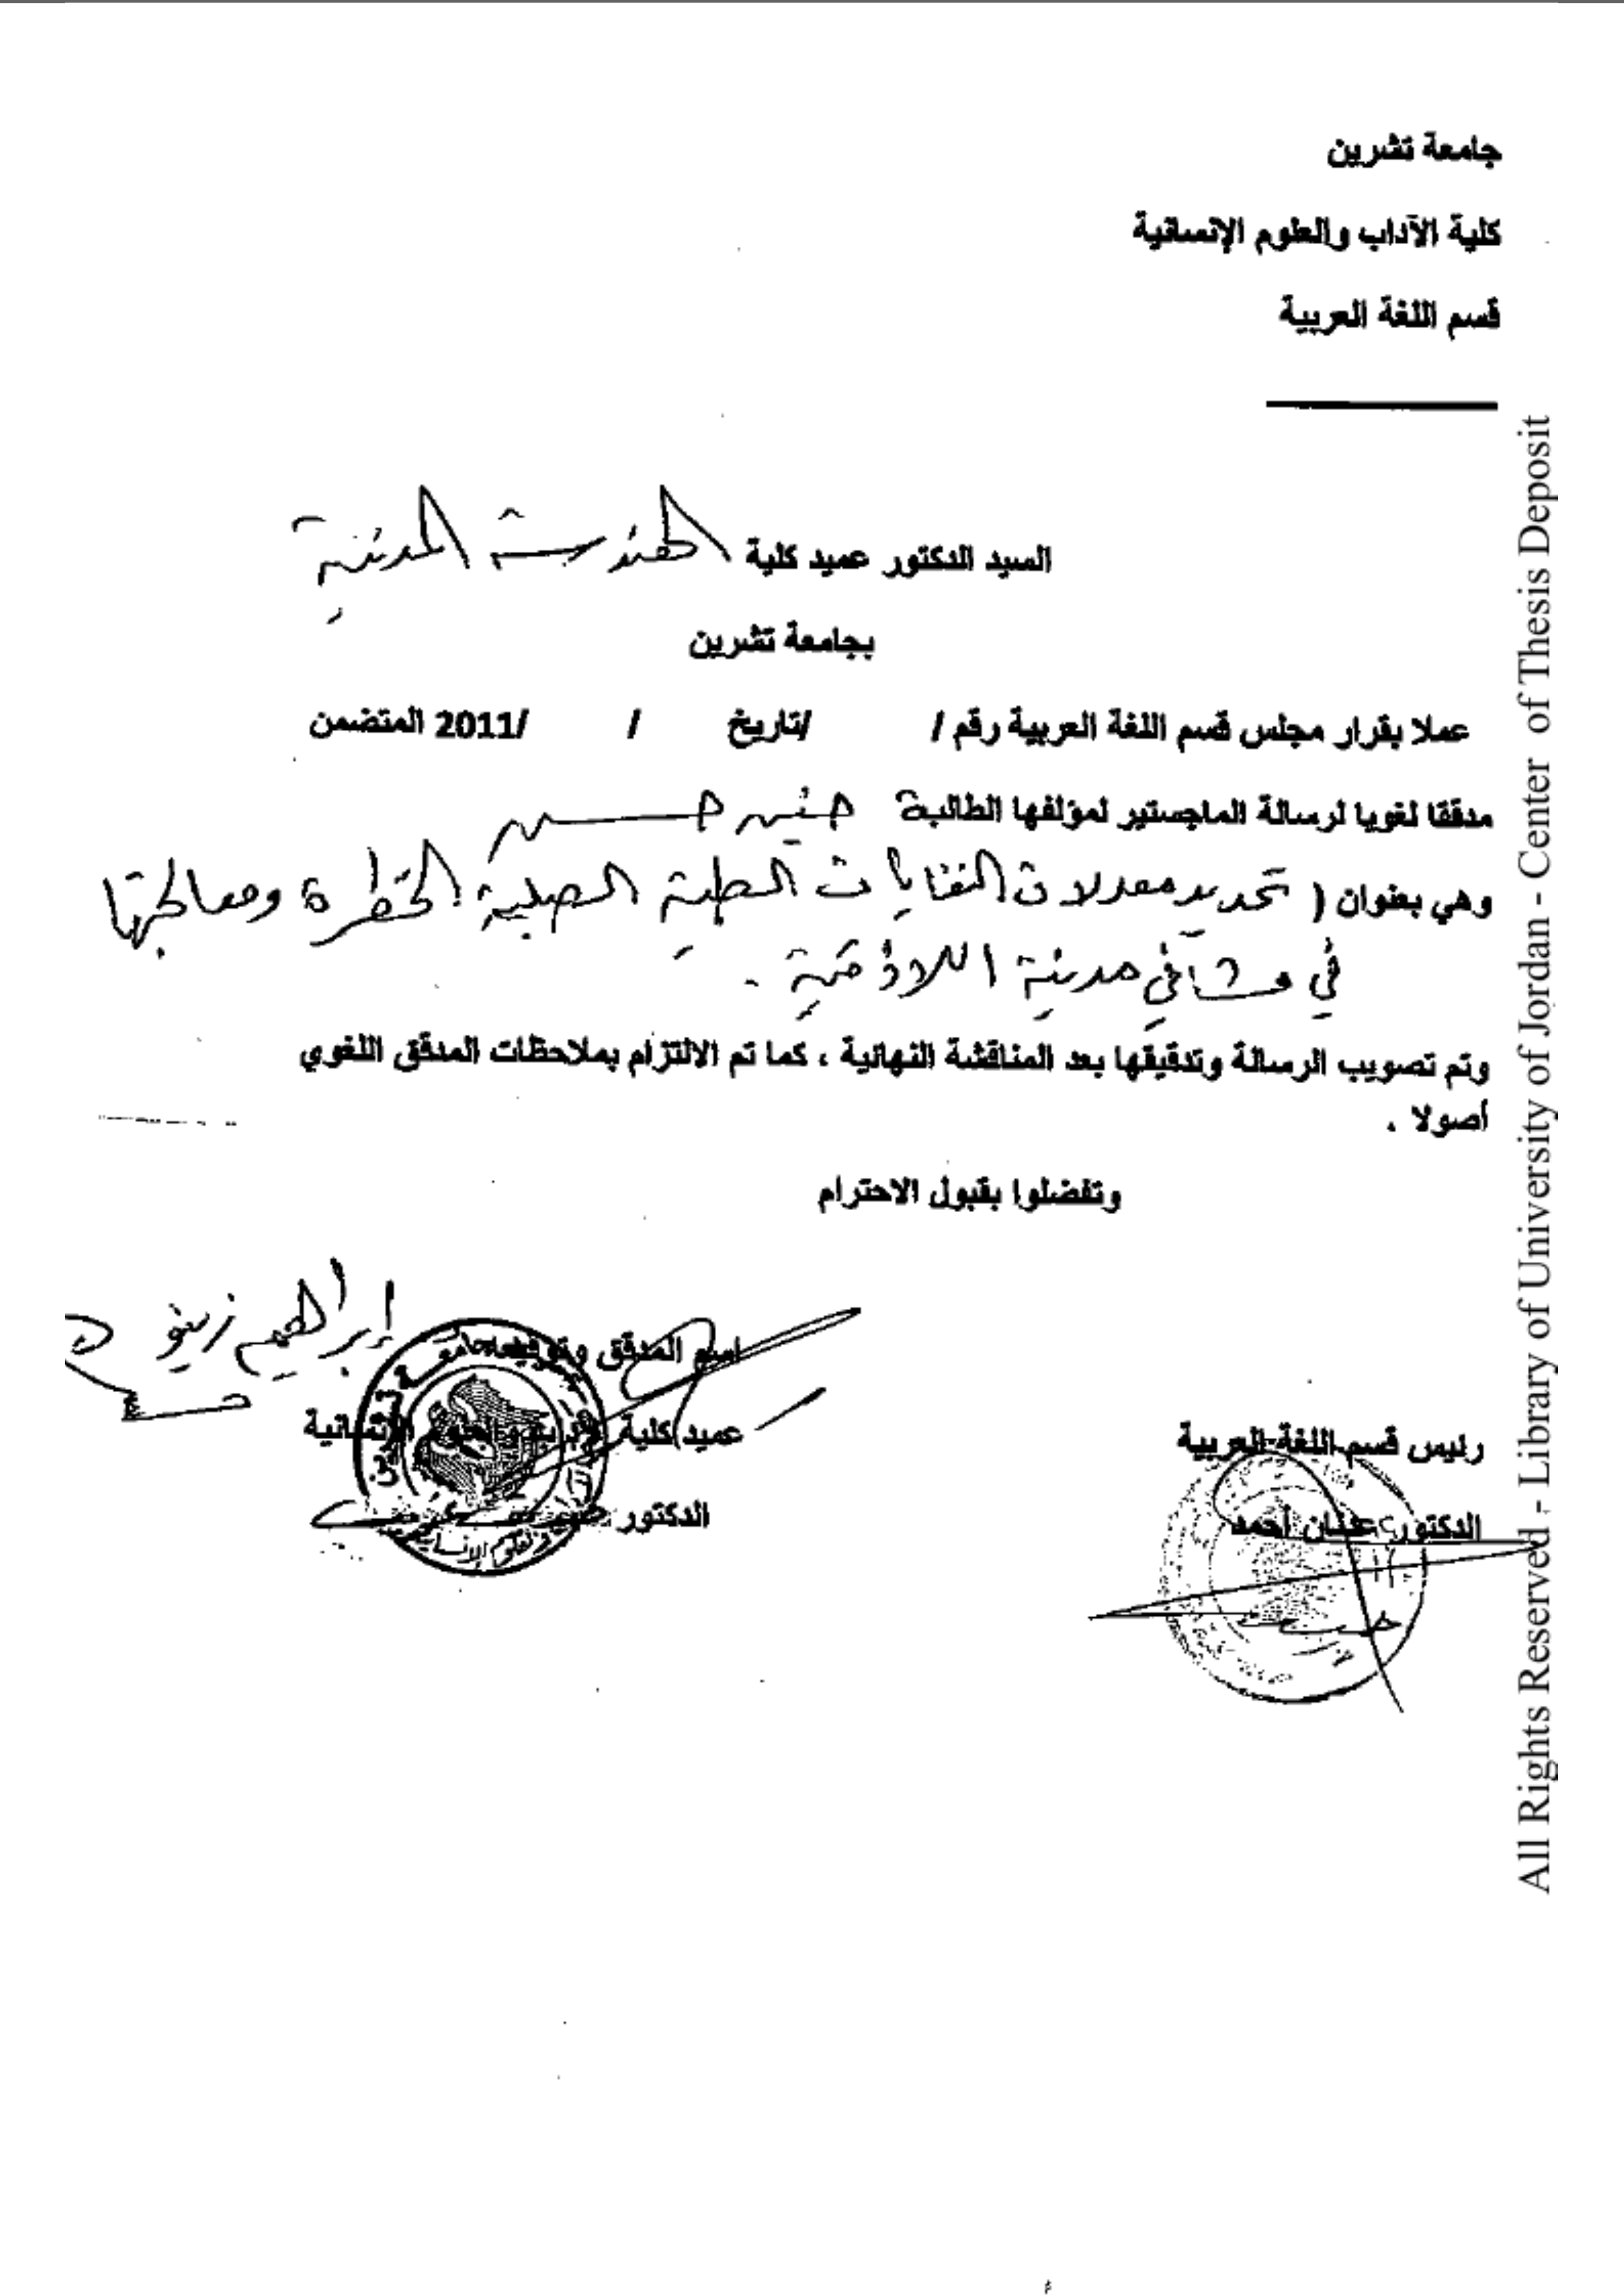 جامعة تشرين
كلية الآداب والعلوم الإنسانية
قسم اللغة العربية
السيد الدكتور عميد كلية الهندسة المدنية
بجامعة تشرين
عملا بقرار مجلس قسم اللغة العربية رقم / /تاريخ / /2011 المتضمن
مدققا لغويا لرسالة الماجستير لمؤلفها الطالبة حسن
وهي بعنوان ( تحديد معدلات النفايات الطبية الصلبة الخطرة ومعالجتها
في مشافي مدينة اللاذقية .
وتم تصويب الرسالة وتدقيقها بعد المناقشة النهائية ، كما تم الالتزام بملاحظات المدقق اللغوي
أصولا .
وتفضلوا بقبول الاحترام
اسم المدقق وتوقيعه إبراهيم
رئيس قسم اللغة العربية
عميد كلية الآداب والعلوم الإنسانية
الدكتور عدنان أحمد
الدكتور
All Rights Reserved - Library of University of Jordan - Center of Thesis Deposit